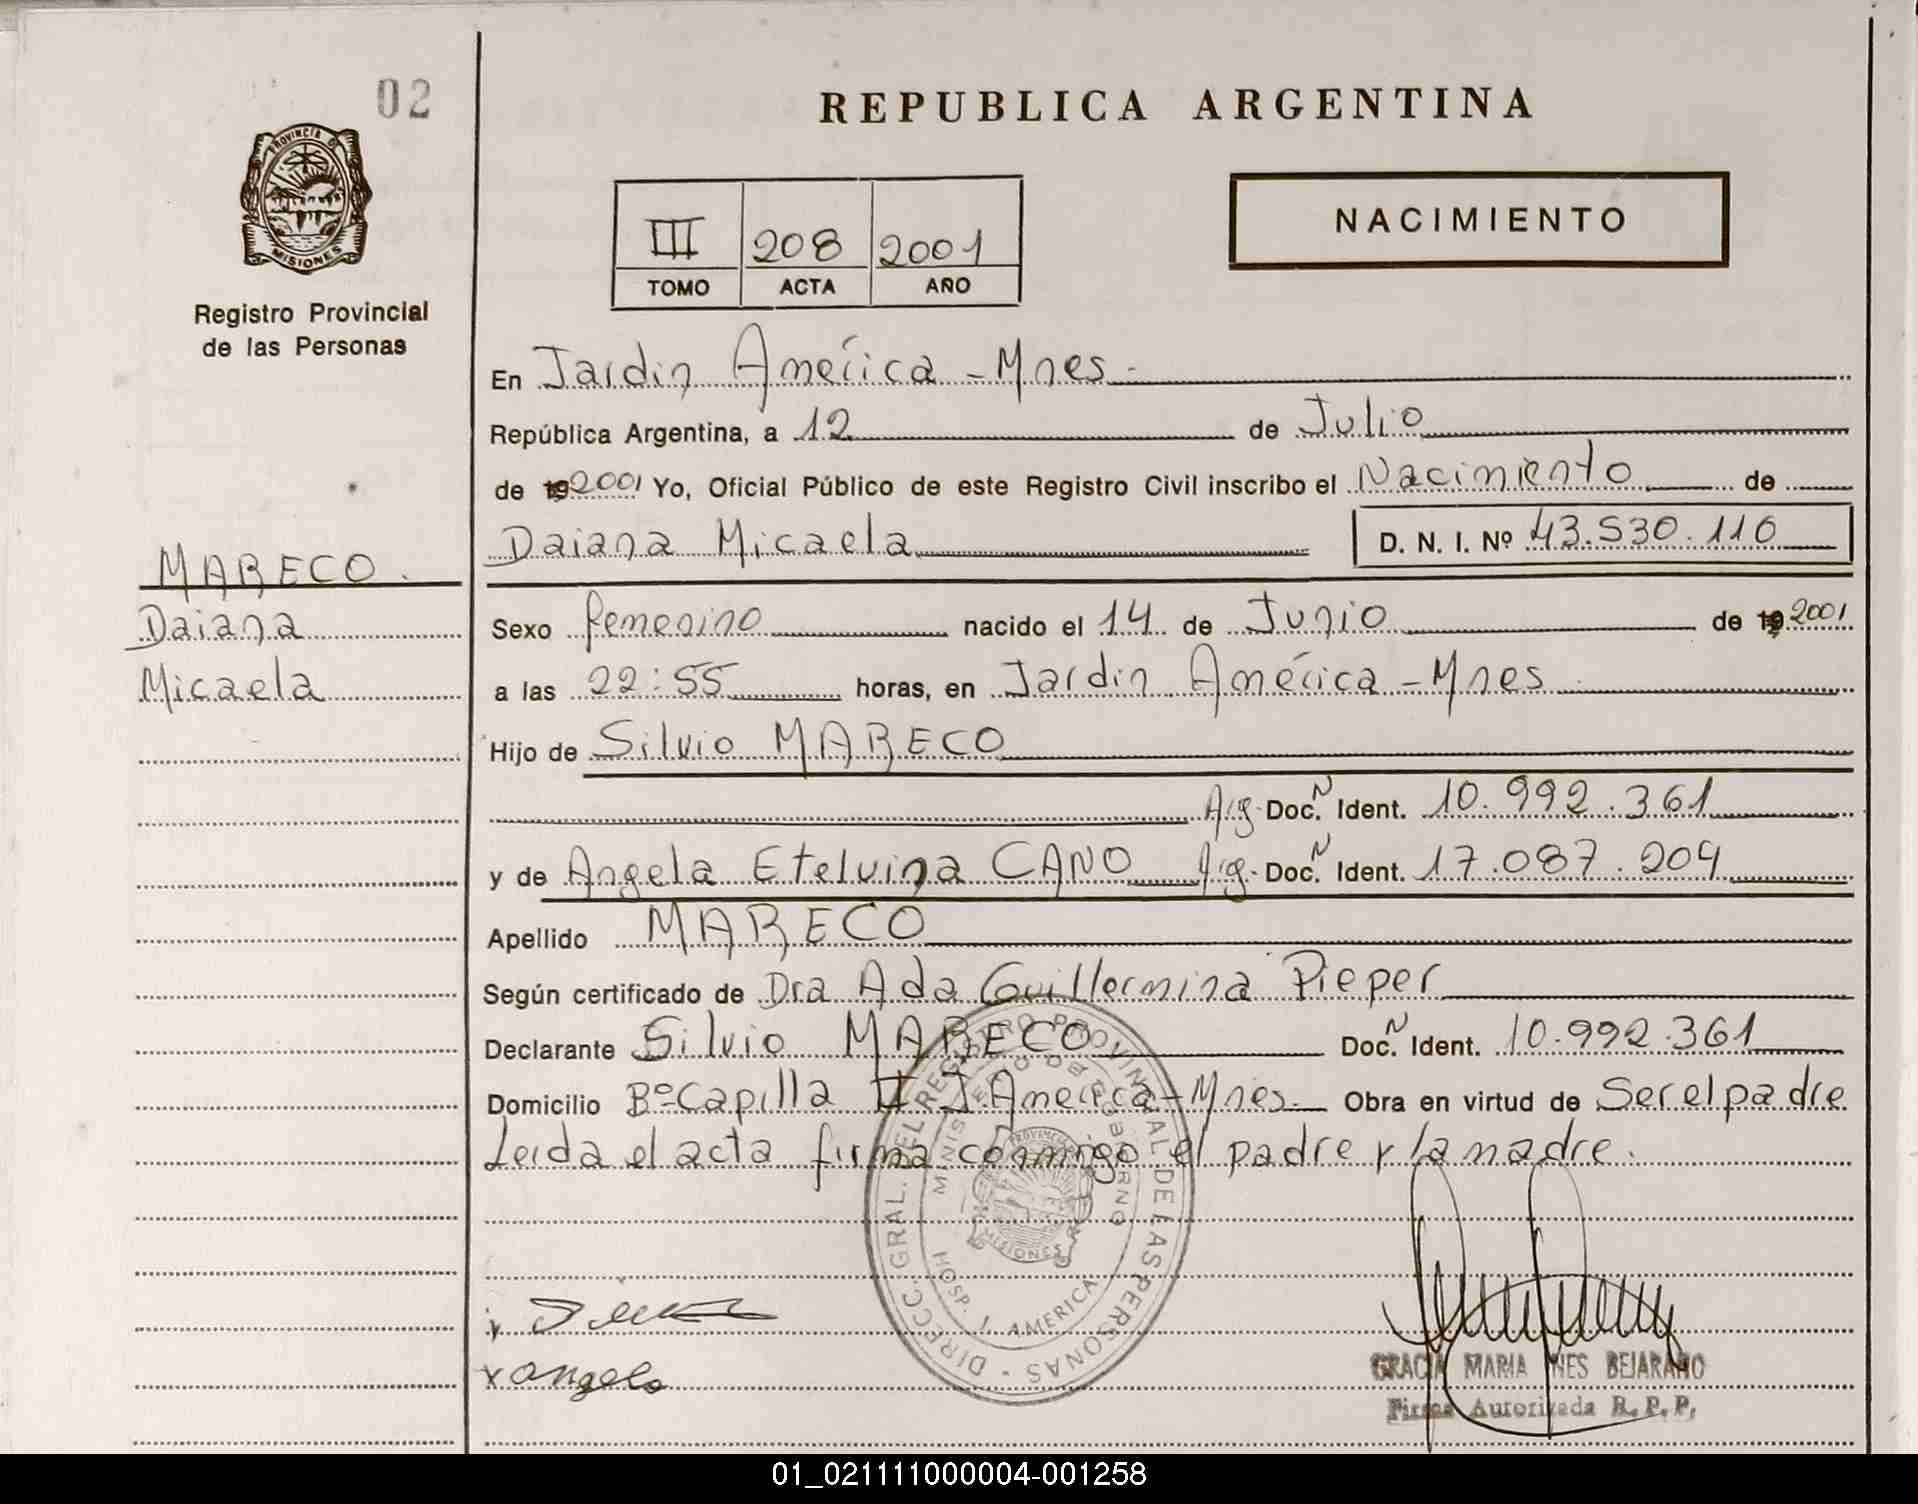 02
REPUBLICA ARGENTINA
PROVINCIA DE
MISIONES
Registro Provincial
de las Personas
III 208 2001
TOMO ACTA AÑO
NACIMIENTO
En Jardin América - Mnes.
República Argentina, a 12 de Julio
de 19 2001 Yo, Oficial Público de este Registro Civil inscribo el Nacimiento de
Daiana Micaela D. N. I. Nº 43.530.110
MARECO.
Daiana
Micaela
Sexo femenino nacido el 14 de Junio de 19 2001
a las 22:55 horas, en Jardin América - Mnes
Hijo de Silvio MARECO
Arg. Doc. N Ident. 10.992.361
y de Angela Etelvina CANO Arg. Doc. N Ident. 17.087.204
Apellido MARECO
Según certificado de Dra Ada Guillermina Pieper
Declarante Silvio MARECO Doc. N Ident. 10.992.361
Domicilio Bº Capilla II J. América - Mnes. Obra en virtud de Ser el padre
Leida el acta firma conmigo el padre y la madre.
DIRECC. GRAL. DEL REGISTRO PROVINCIAL DE LAS PERSONAS
MINISTERIO DE GOBIERNO
PROVINCIA
MISIONES
HOSP. J. AMERICA
x angela
GRACIA MARIA INES BEJARANO
Firma Autorizada R. P. P.
01_021111000004-001258